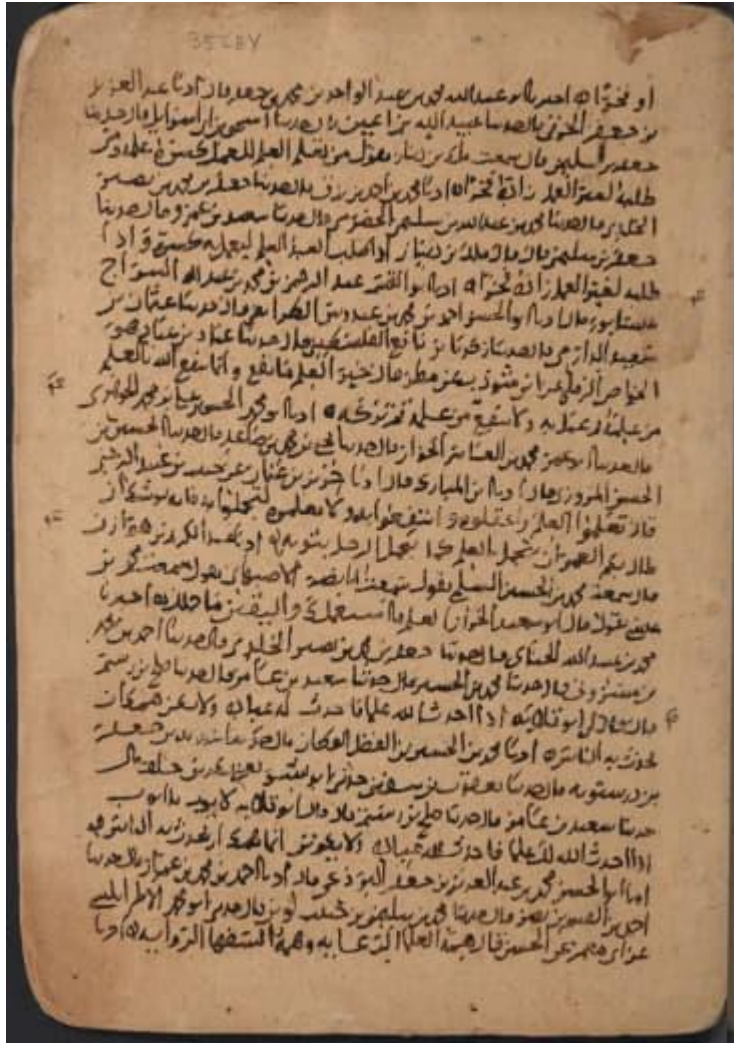 او فخرا اخبرنا ابو عبد الله محمد بن عبد الواحد بن محمد بن جعفر قال انا عبد العزيز
بن جعفر الخرقي قال حدثنا اسحق بن اسرائيل قال حدثنا
جعفر بن سليمن قال سمعت ملك بن دينار يقول من تعلم العلم للعمل كسره علمه ومن
طلبه لغير العمل زاده فخرا انا محمد بن احمد بن رزق قال حدثنا جعفر بن محمد بن نصير
الخلدي قال حدثنا محمد بن عبد الله بن سليمن الحضرمي قال حدثنا سعيد بن عمرو قال حدثنا
جعفر بن سليمن قال قال ملك بن دينار اذا طلب العبد العلم ليعمل به كسره واذا
طلبه لغير العمل زاده فخرا انا ابو الفتح عبد الرحمن بن محمد بن عبد الله السراج
بنيسابور قال انا ابو الحسن احمد بن محمد بن عبدوس الطرائفي قال حدثنا عثمان بن
سعيد الدارمي قال حدثنا بن نافع الفلسطيني قال حدثنا عباد بن عباد هو
الخواص الرملي عن ابن شوذب عن مطر قال خير العلم ما نفع وانما ينفع الله بالعلم
من علمه ثم عمل به ولا ينفع من علمه ثم تركه انا ابو محمد الحسن بن علي بن محمد الجوهري
قال حدثنا محمد بن العباس الخزاز قال حدثنا يحيى بن محمد بن صاعد قال حدثنا الحسين بن
الحسن المروزي قال انا ابن المبارك قال انا عن حبيب بن عبيد الرحبي
قال تعلموا العلم واعقلوه وانتفعوا به ولا تعلموه لتجملوا به فانه يوشك ان
طال بكم العمر ان يتجمل بالعلم كما يتجمل الرجل بثوبه انا عبد الكريم بن هوازن
قال سمعت محمد بن الحسين السلمي يقول سمعت ابا نصر الاصبهاني يقول سمعت محمد بن
عيسى يقول قال ابو سعيد الخراز العلم ما استعملك واليقين ما حملك اخبرنا
محمد بن عبد الله الحنائي قال حدثنا جعفر بن محمد بن نصير الخلدي قال حدثنا احمد بن محمد
بن مسروق قال حدثنا محمد بن الحسين قال حدثنا سعيد بن عامر قال حدثنا صالح بن رستم
قال قال ابو قلابة اذا احدث الله لك علما فاحدث له عبادة ولا يكن همك ان
تحدث به الناس انا محمد بن الحسين بن الفضل القطان قال حدثنا عبد الله بن جعفر
بن درستويه قال حدثنا يعقوب بن سفين
حدثنا سعيد بن عامر قال حدثنا صالح بن رستم قال قال ابو قلابة لايوب يا ايوب
اذا احدث الله لك علما فاحدث لله عبادة ولا يكونن انما همك ان تحدث به الناس
انا ابو الحسن محمد بن عبد العزيز بن جعفر البرذعي قال انا احمد بن محمد بن عمران قال حدثنا
قال حدثنا محمد بن سليمن بن حبيب لوين قال حدثنا ابو محمد الاطرابلسي
عن ابي معمر عن الحسن قال همة العلماء الرعاية وهمة السفهاء الرواية انا